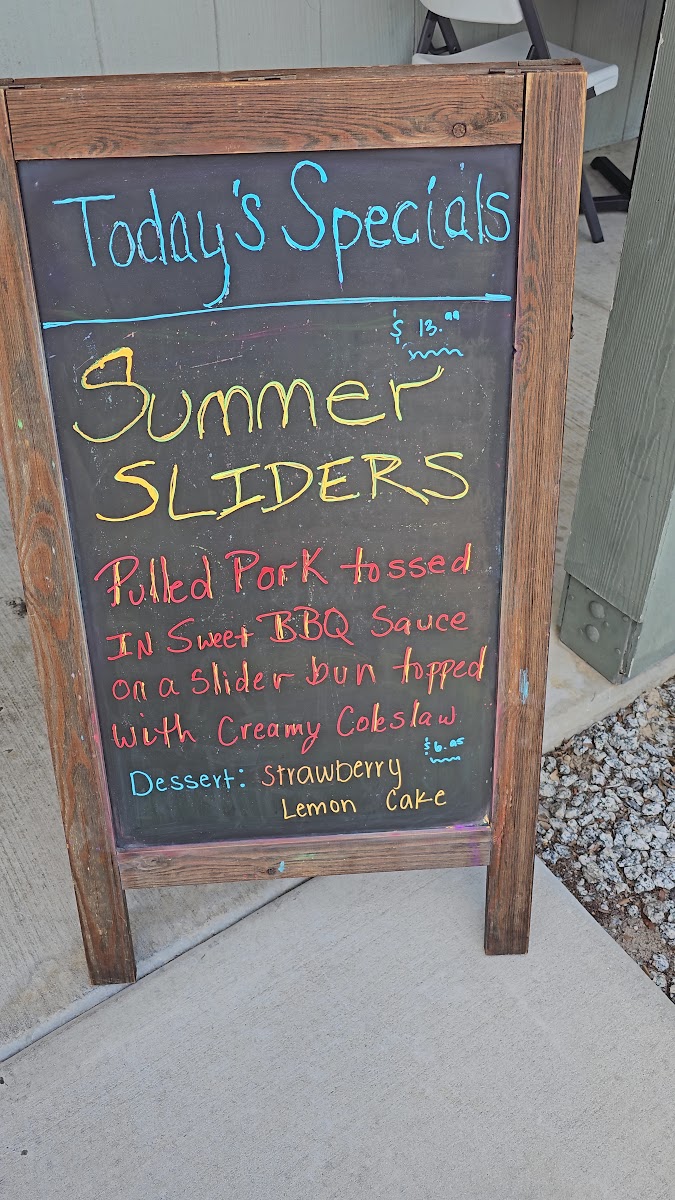 Today's Specials
$ 13.99
Summer
SLIDERS
Pulled Pork tossed
IN Sweet BBQ Sauce
on a slider bun topped
with Creamy Coleslaw
$6.95
Dessert: Strawberry
Lemon Cake